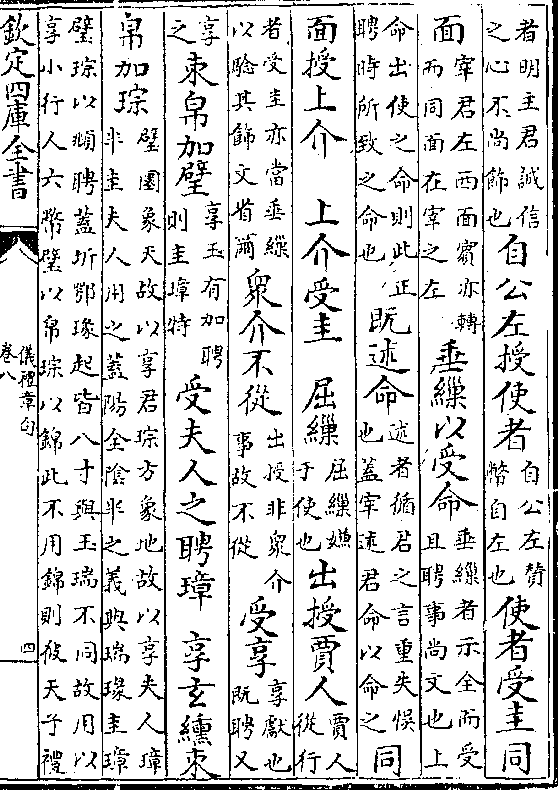 者明主君誠信
之心不尚飾也
自公左授使者
自公左贊
幣自左也
使者受圭同
面
宰君左西面賓亦轉
而同面在宰之左
垂繅以受命
垂繅者示全而受
且聘事尚文也上
命出使之命則此正
聘時所致之命也
既述命
述者循君之言重失悮
也蓋宰述君命以命之
同
面授上介 上介受圭 屈繅
屈繅嫌
于使也
出授賈人
賈人
從行
者受圭亦當垂繅
以騐其飾文省爾
眾介不從
出授非眾介
事故不從
受享
享獻也
既聘又
享
之
束帛加璧
享玉有加聘
則圭璋特
受夫人之聘璋 享玄纁束
帛加琮
璧圜象天故以享君琮方象地故以享夫人璋
半圭夫人用之蓋陽全陰半之義與瑞瑑圭璋
璧琮以頫聘蓋圻鄂瑑起皆八寸與玉瑞不同故用以
享小行人六幣璧以帛琮以錦此不用錦則彼天子禮
欽定四庫全書
儀禮章句
卷八
四